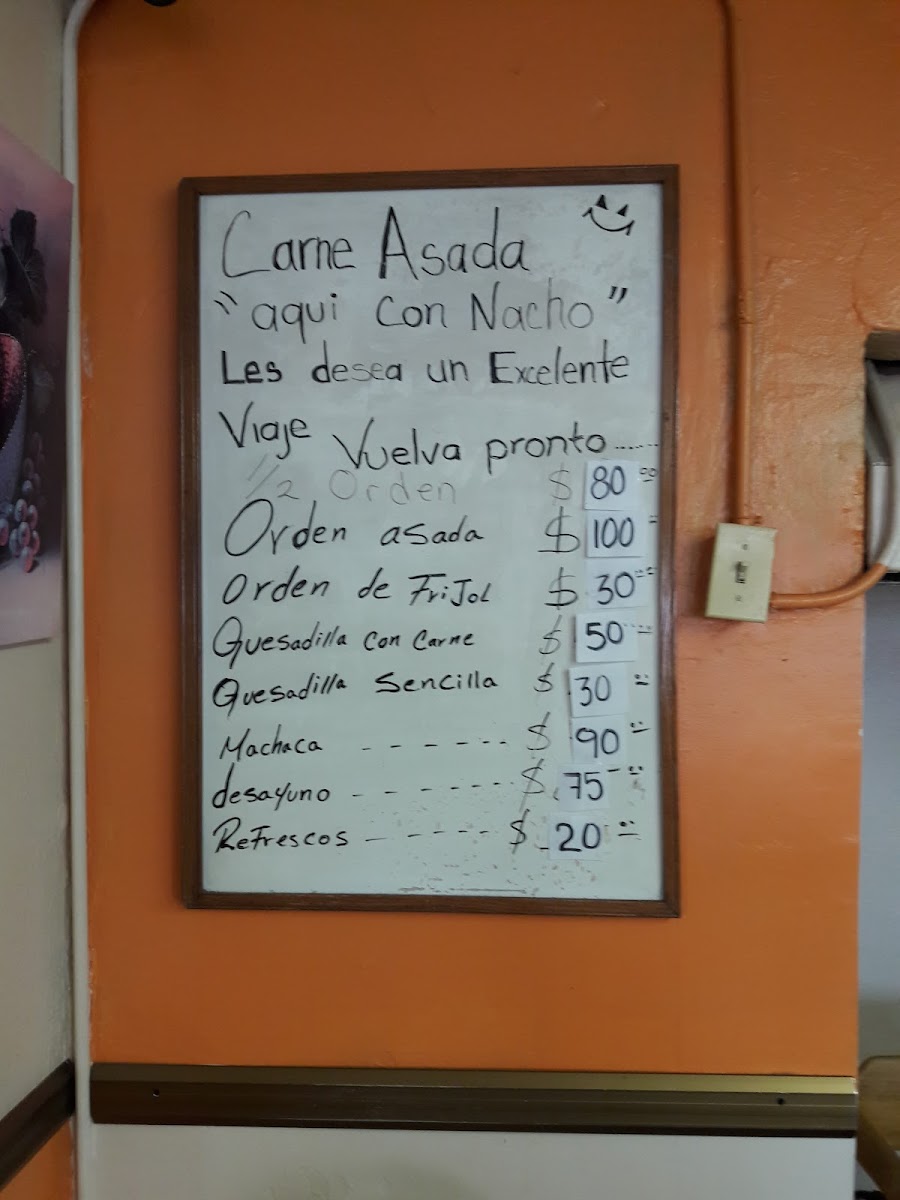 Carne Asada
"aqui con Nacho"
Les desea un Excelente
Viaje Vuelva pronto......
1/2 Orden $ 80 00
Orden asada $ 100 =
Orden de FriJol $ 30 =
Quesadilla con carne $ 50 =
Quesadilla Sencilla $ 30 =
Machaca - - - - - - - $ 90 =
desayuno - - - - - - - $ 75 =
Refrescos - - - - - - $ 20 =